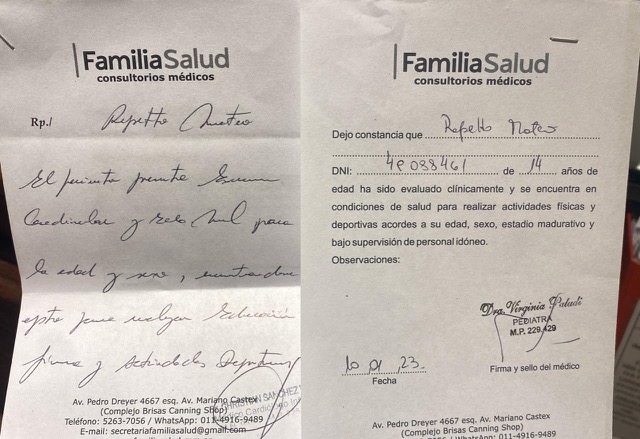 FamiliaSalud
consultorios médicos
Rp./ Repetto Mateo
El paciente presenta Examen
Cardiovascular y ECG normal para
la edad y sexo, encontrandose
apto para realizar Educación
física y actividades Deportivas
CHRISTIAN SANCHEZ
Av. Pedro Dreyer 4667 esq. Av. Mariano Castex
(Complejo Brisas Canning Shop)
Teléfono: 5263-7056 / WhatsApp: 011-4916-9489
E-mail: secretariafamiliasalud@gmail.com
FamiliaSalud
consultorios médicos
Dejo constancia que Repetto Mateo
DNI: de 14 años de
edad ha sido evaluado clínicamente y se encuentra en
condiciones de salud para realizar actividades físicas y
deportivas acordes a su edad, sexo, estadio madurativo y
bajo supervisión de personal idóneo.
Observaciones:
Dra. Virginia Paludi
PEDIATRA
M.P. 229.429
10 01 23
Fecha
Firma y sello del médico
Av. Pedro Dreyer 4667 esq. Av. Mariano Castex
(Complejo Brisas Canning Shop)
Teléfono: 5263-7056 / WhatsApp: 011-4916-9489